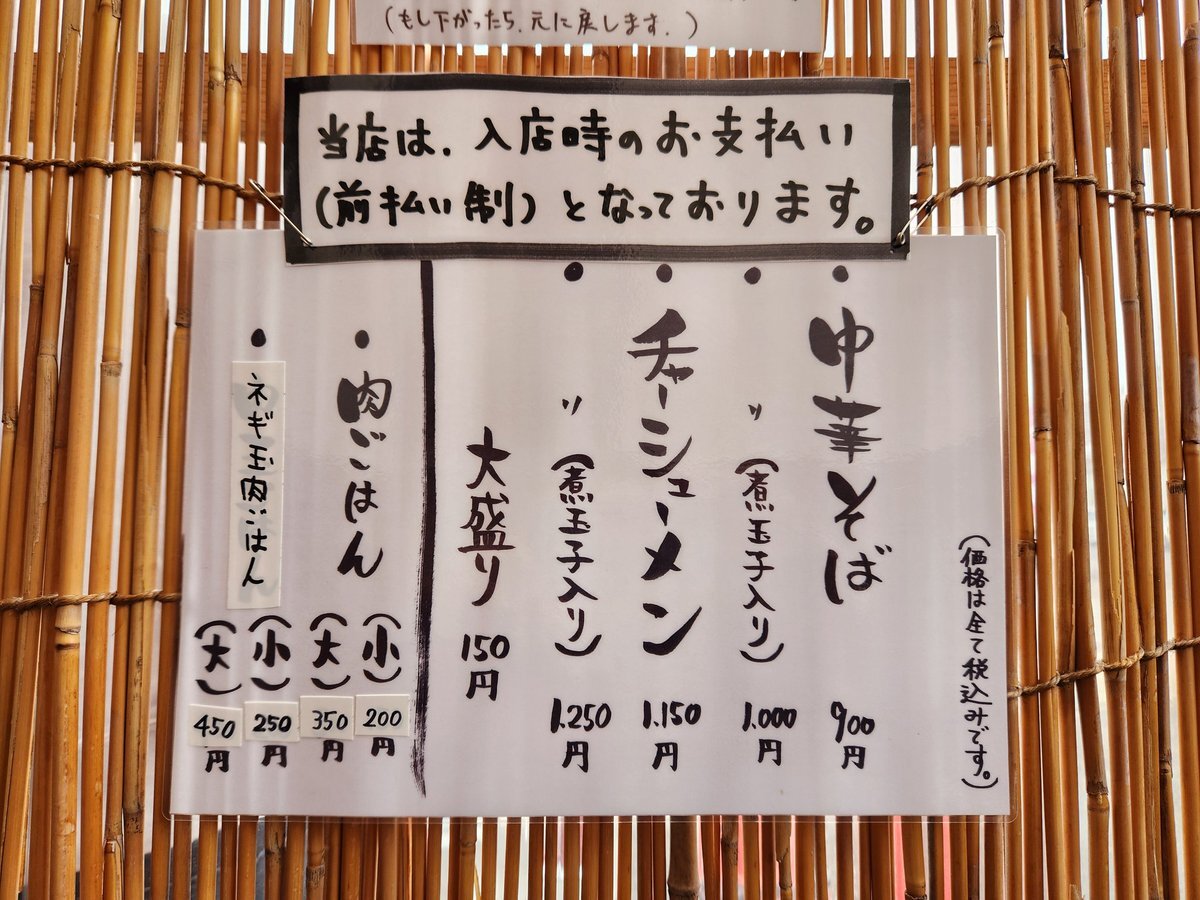 (もし下がったら、元に戻します。)
当店は、入店時のお支払い
(前払い制)となっております。
(価格は全て税込みです。)
・中華そば 900円
・〃(煮玉子入り) 1.000円
・チャーシューメン 1.150円
・〃(煮玉子入り) 1.250円
大盛り 150円
・肉ごはん (小) 200円
(大) 350円
・ネギ玉肉ごはん (小) 250円
(大) 450円